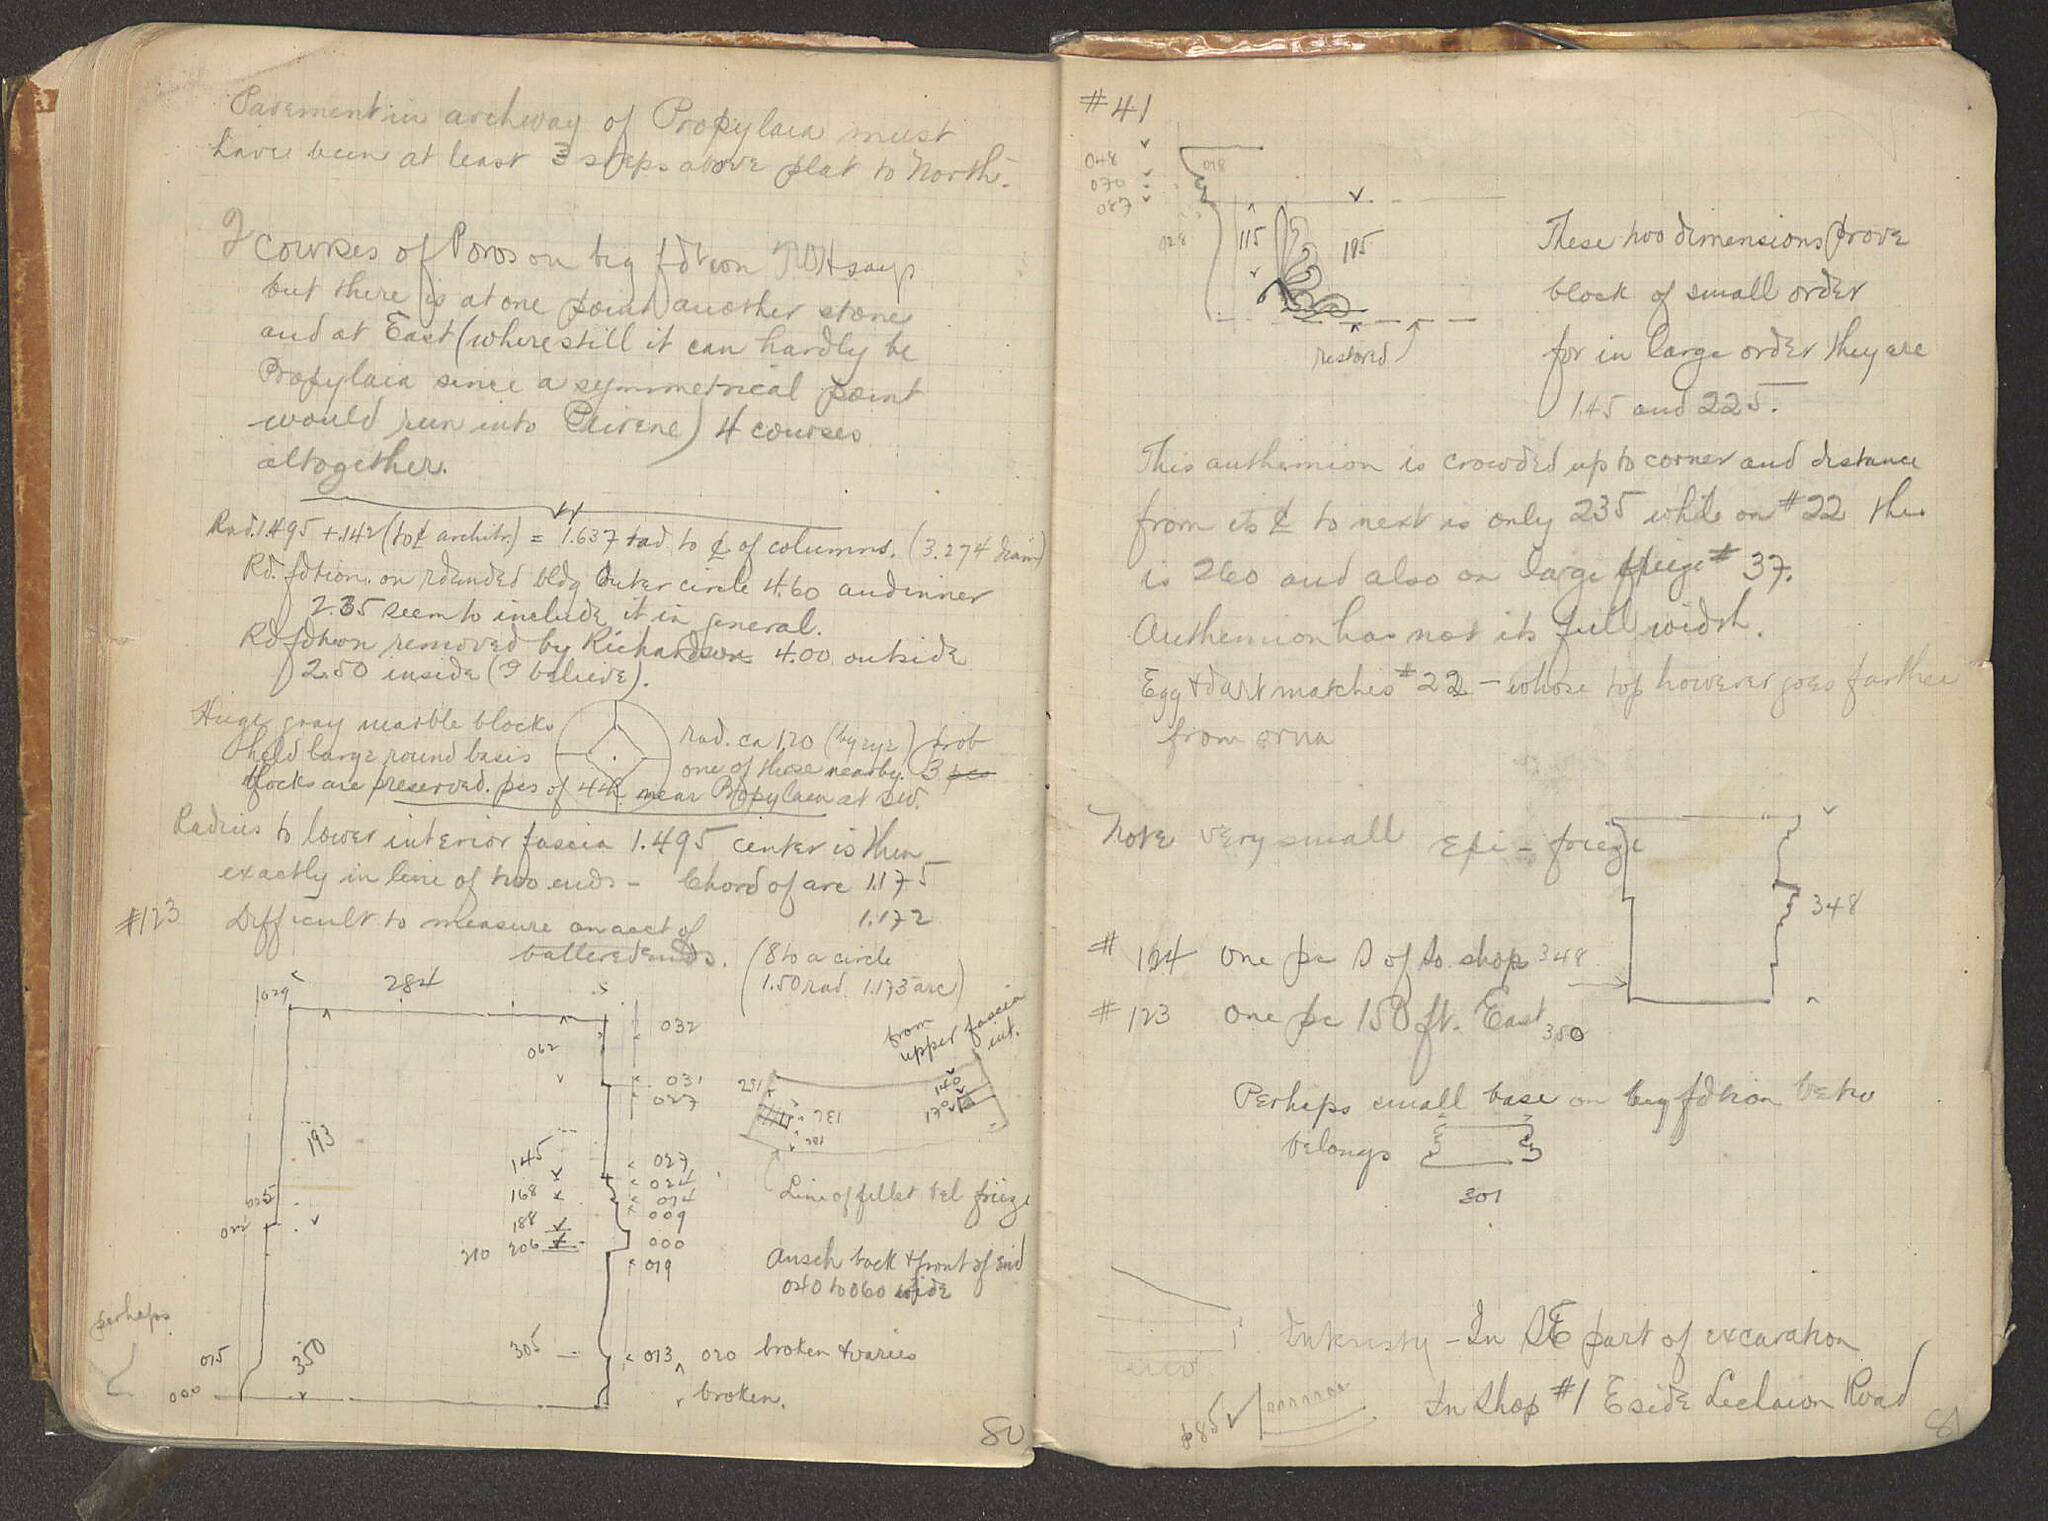 Pavement in archway of Propylaia must
have been at least 3 steps above plat to North.
2 courses of Poros on big fdtion says
but there is at one point another stone
and at East (where still it can hardly be
Propylaia since a symmetrical point
would run into Peirene) 4 courses
altogether.
Rad. 1.495 + .142 (to ¢ architr.) = 1.637 rad to ¢ of columns. (3.274 diam)
Rd. fdtion. on rounded bldg outer circle 4.60 and inner
2.35 seem to include it in general.
Rd fdtion removed by Richardson 4.00 outside
2.50 inside (I believe).
Huge gray marble blocks
held large round basis
blocks are preserved. pcs of 4th near Propylaea at SW.
rad. ca 1.20 (by eye) prob
one of these nearby. 3 pcs
Radius to lower interior fascia 1.495 center is then
exactly in line of two ends – Chord of arc 1.175
1.172
#123 Difficult to measure on acct of
battered ends.
(8 to a circle
1.50 rad. 1.173 arc)
029 284
032
062
031
027
193
145 027
168 024
014
188 009
210 206 000
019
025
022
perhaps
015 350 305 013 020 broken & varies
000 broken.
from
upper fascia
int.
251 140
131 170
Line of fillet bel frieze
Ansch back & front of end
040 to 060 wide
80
#41
048
070
087
018
028
115 185
restored
These two dimensions prove
block of small order
for in large order they are
145 and 225.
This anthemion is crowded up to corner and distance
from its ¢ to next is only 235 while on #22 the
is 260 and also on large frieze #37.
Anthemion has not its full width.
Egg & dart matches #22 – whose top however goes farther
from orna
Note very small Epi-frieze
348
# 124 one pc S of So. shop 348
# 123 one pc 150 ft. East 350
Perhaps small base on big fdtion betw
belongs
301
In SE part of excavation
In Shop #1 E side Lechaion Road
p 85
81